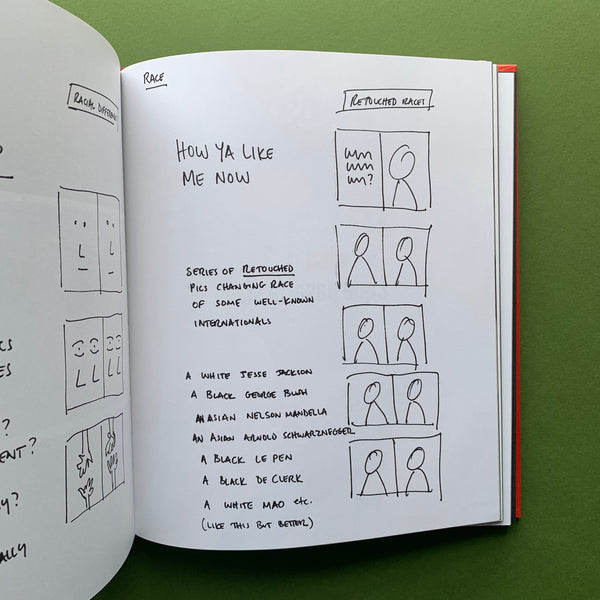 RACIAL
CS
ES
?
ENT?
Y?
ALLY
RACE
RETOUCHED RACES
HOW YA LIKE
ME NOW
?
SERIES OF RETOUCHED
PICS CHANGING RACE
OF SOME WELL-KNOWN
INTERNATIONALS
A WHITE JESSE JACKSON
A BLACK GEORGE BUSH
AN ASIAN NELSON MANDELLA
AN ASIAN ARNOLD SCHWARZNEGGER
A BLACK LE PEN
A BLACK DE CLERK
A WHITE MAO etc.
(LIKE THIS BUT BETTER)